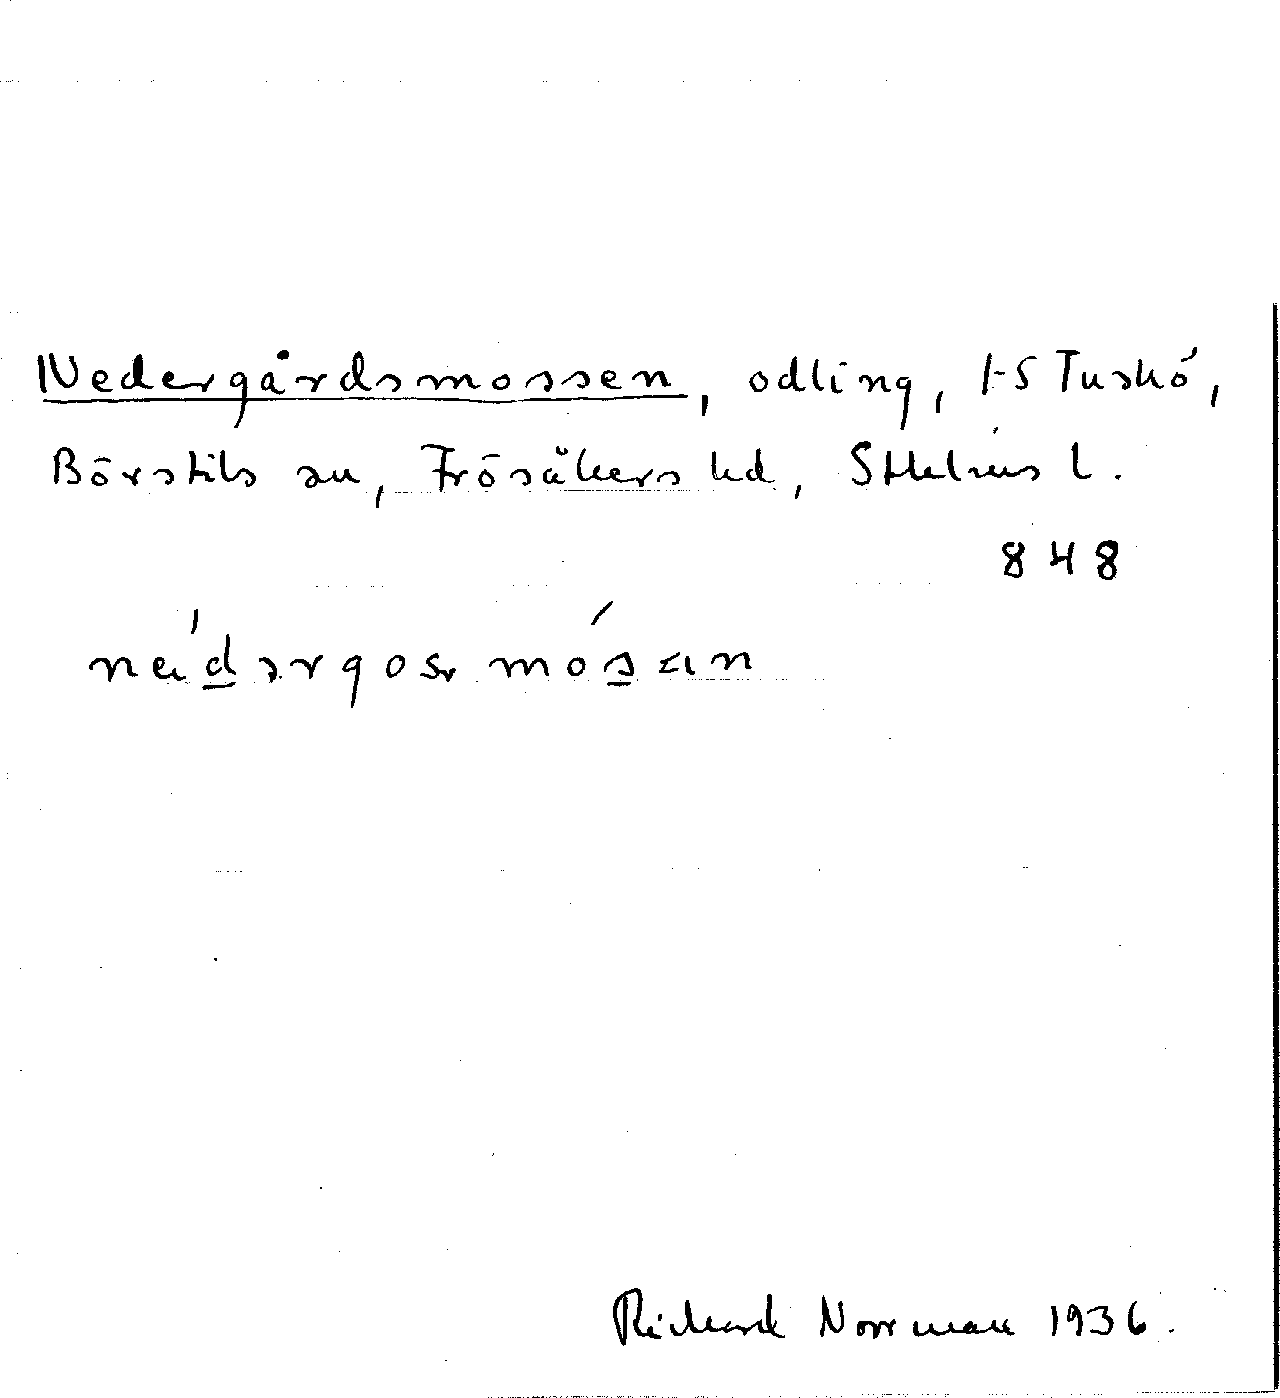 Nedergårdsmossen, odling, 1-5 Tuskö,
Börstils sn, Frösåkers hd, Sthlms l.
848
Richard Norrman 1936.